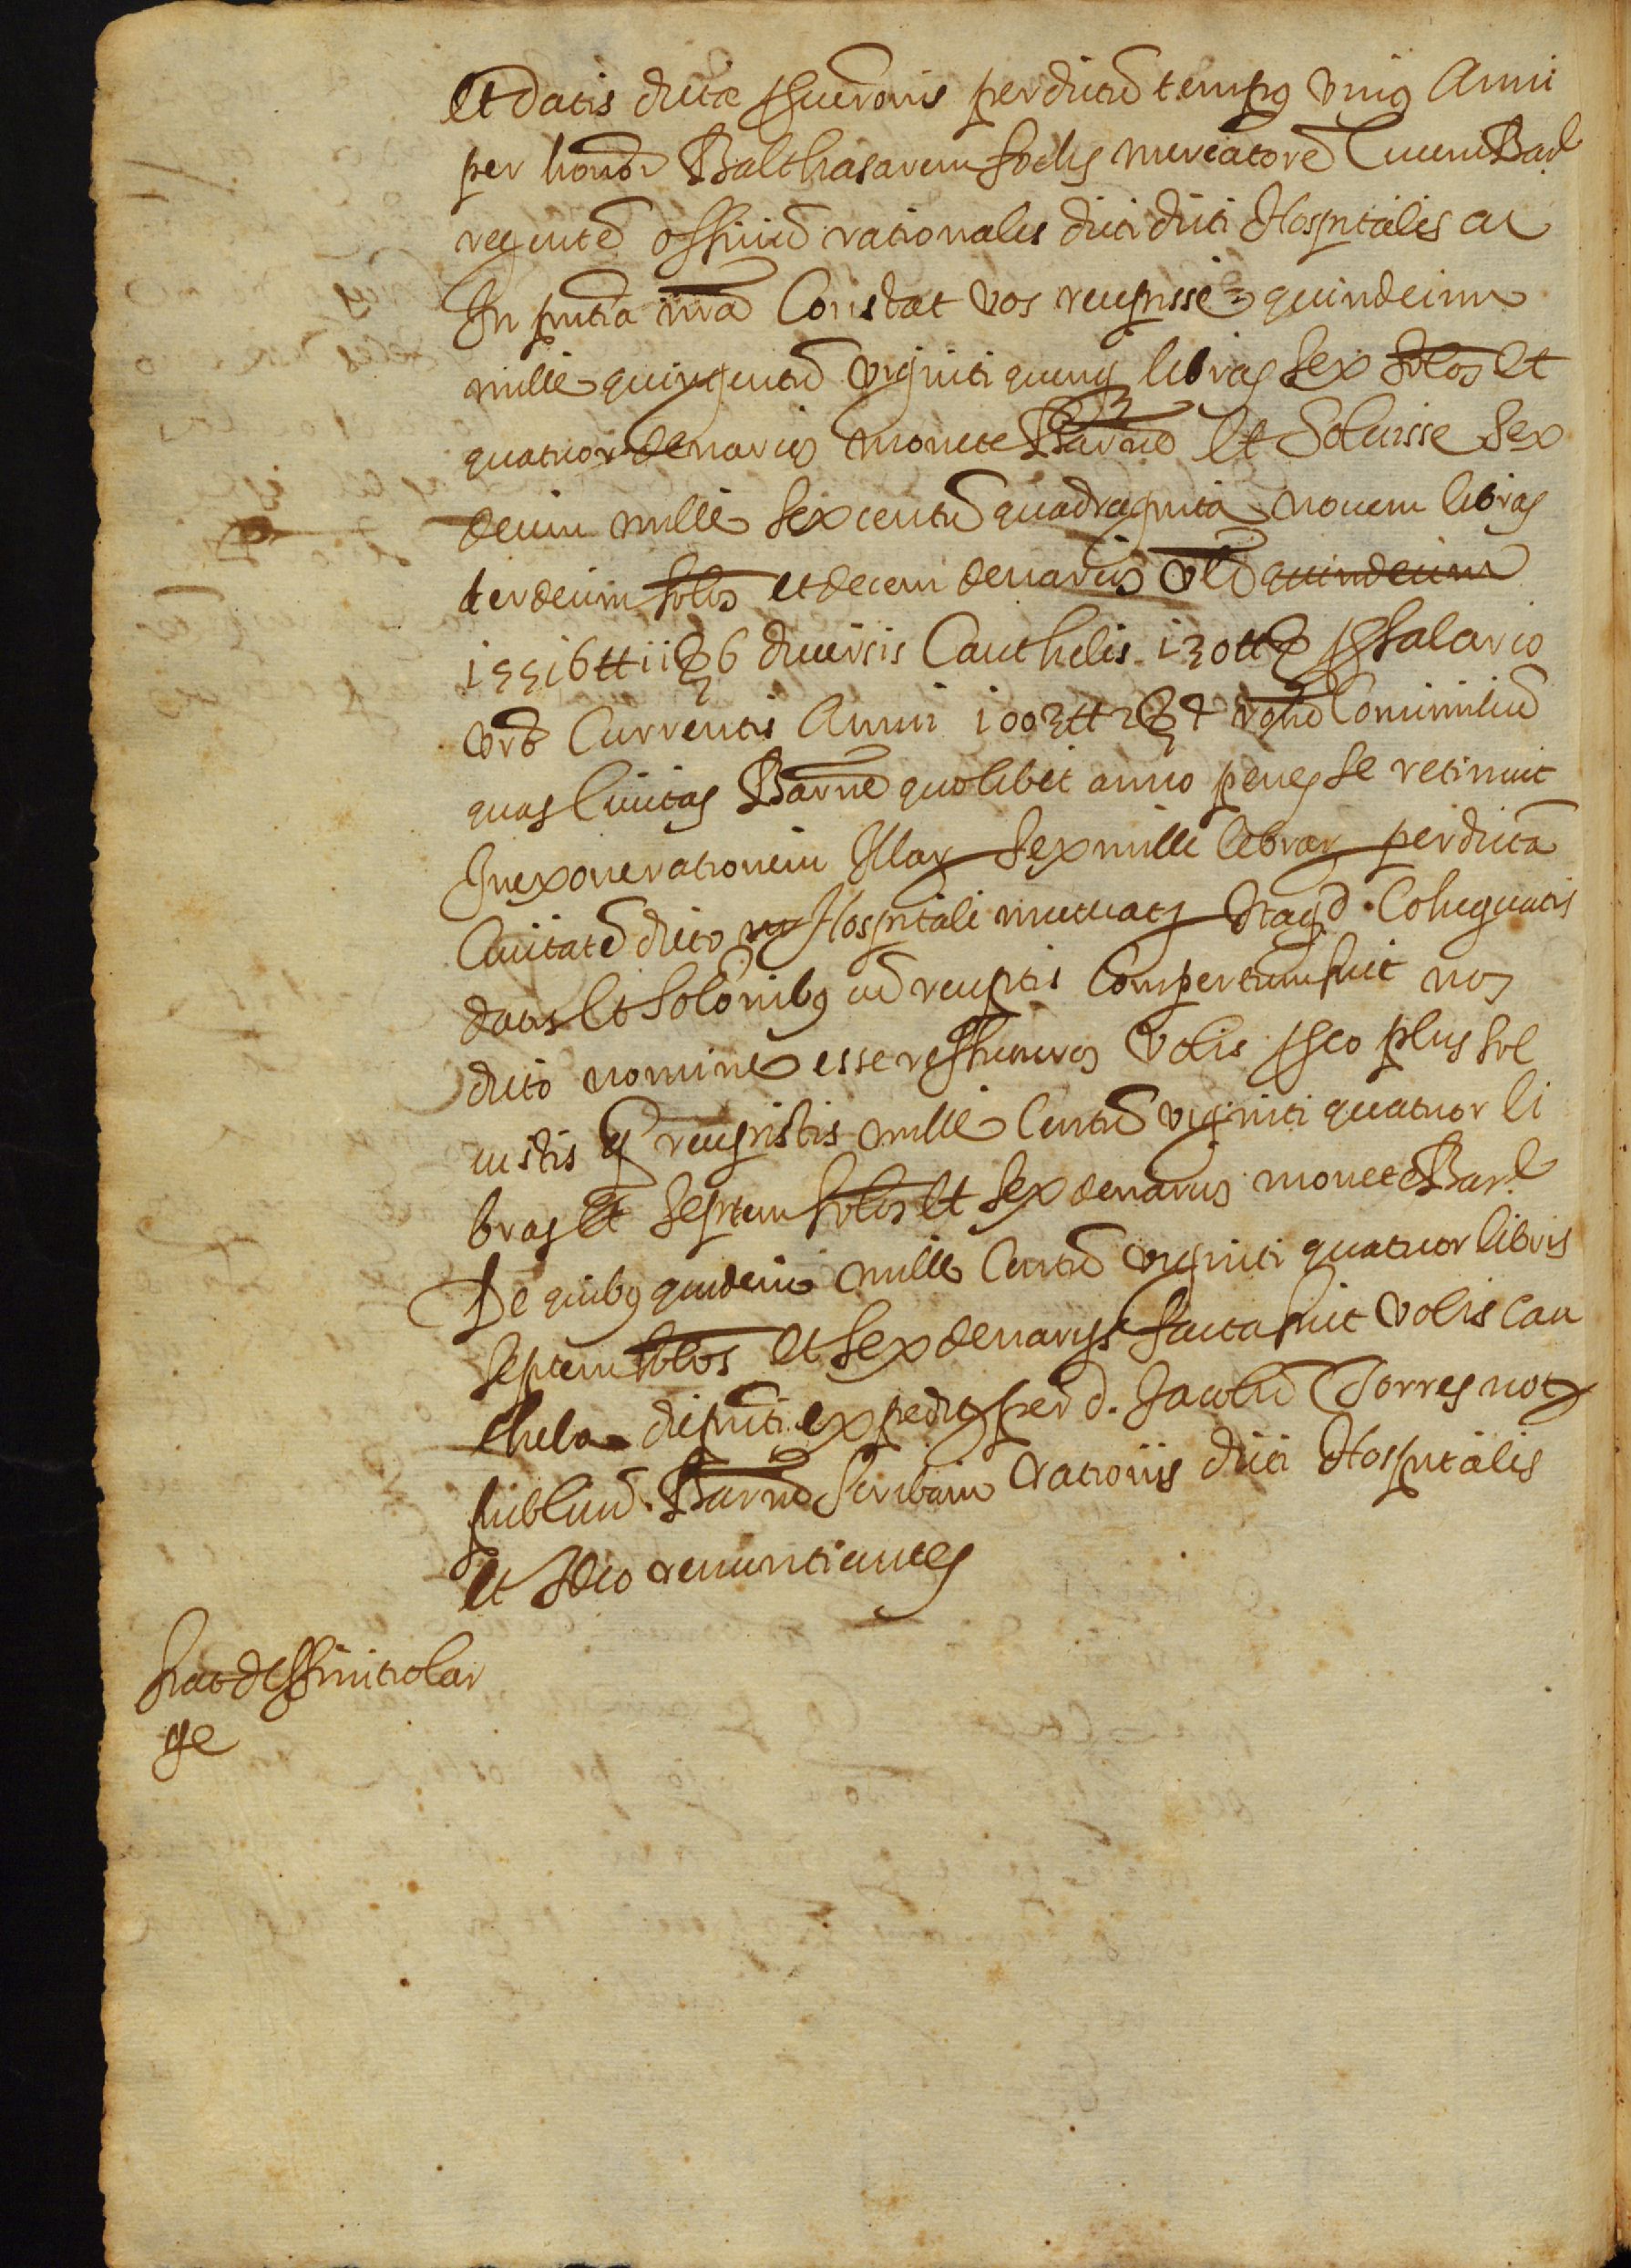 et datis dicte speronis per dictũ tempus unius Anni
per honor Balthasarem sodes mercatorẽ Civem Barł
regentẽ officiũ rationalis dicti dicti Hospitalis ac
In pñtia nrã Constat vos recepisse quindecim
mille quingentũ viginti quinq libras sex solos et
quatuor denarios monete Barñe et soluisse sex
decim mille sexcentũ quadraginta novem libras
terdecim solos et decem denarios vłt quindecim
15516 tt 11 ẞ 6 diversis Cauthelis. 130 tt ẞ p salario
Currentis Anni 1003 tt 2 ẞ 4 Consimiliũ
quas Civitas Barñe quolibet anno penes se retinuit
In exonerationem Illar sex mille librar per dictã
Civitatẽ dicto Hospitali mutuatar Itaq d. Cohequatis
datis et solõnibus cũ receptis Compertum fuit nos
dicto nomine esse restituturos vobis p eo plus sol
vistis q recepistis mille Centũ viginti quatuor li
bras et septem solos et sex denarios monete Barł
De quibus quidem mille Centũ viginti quatuor libris
septem solos et sex denarijs facta fuit vobis cau
thela dieputi expedit per d. Jacobũ Torres not
publicũ. Barñe scribam rationis dicti Hospitalis
et Ideo renuntiantes
fiat deffinitio lar
ge